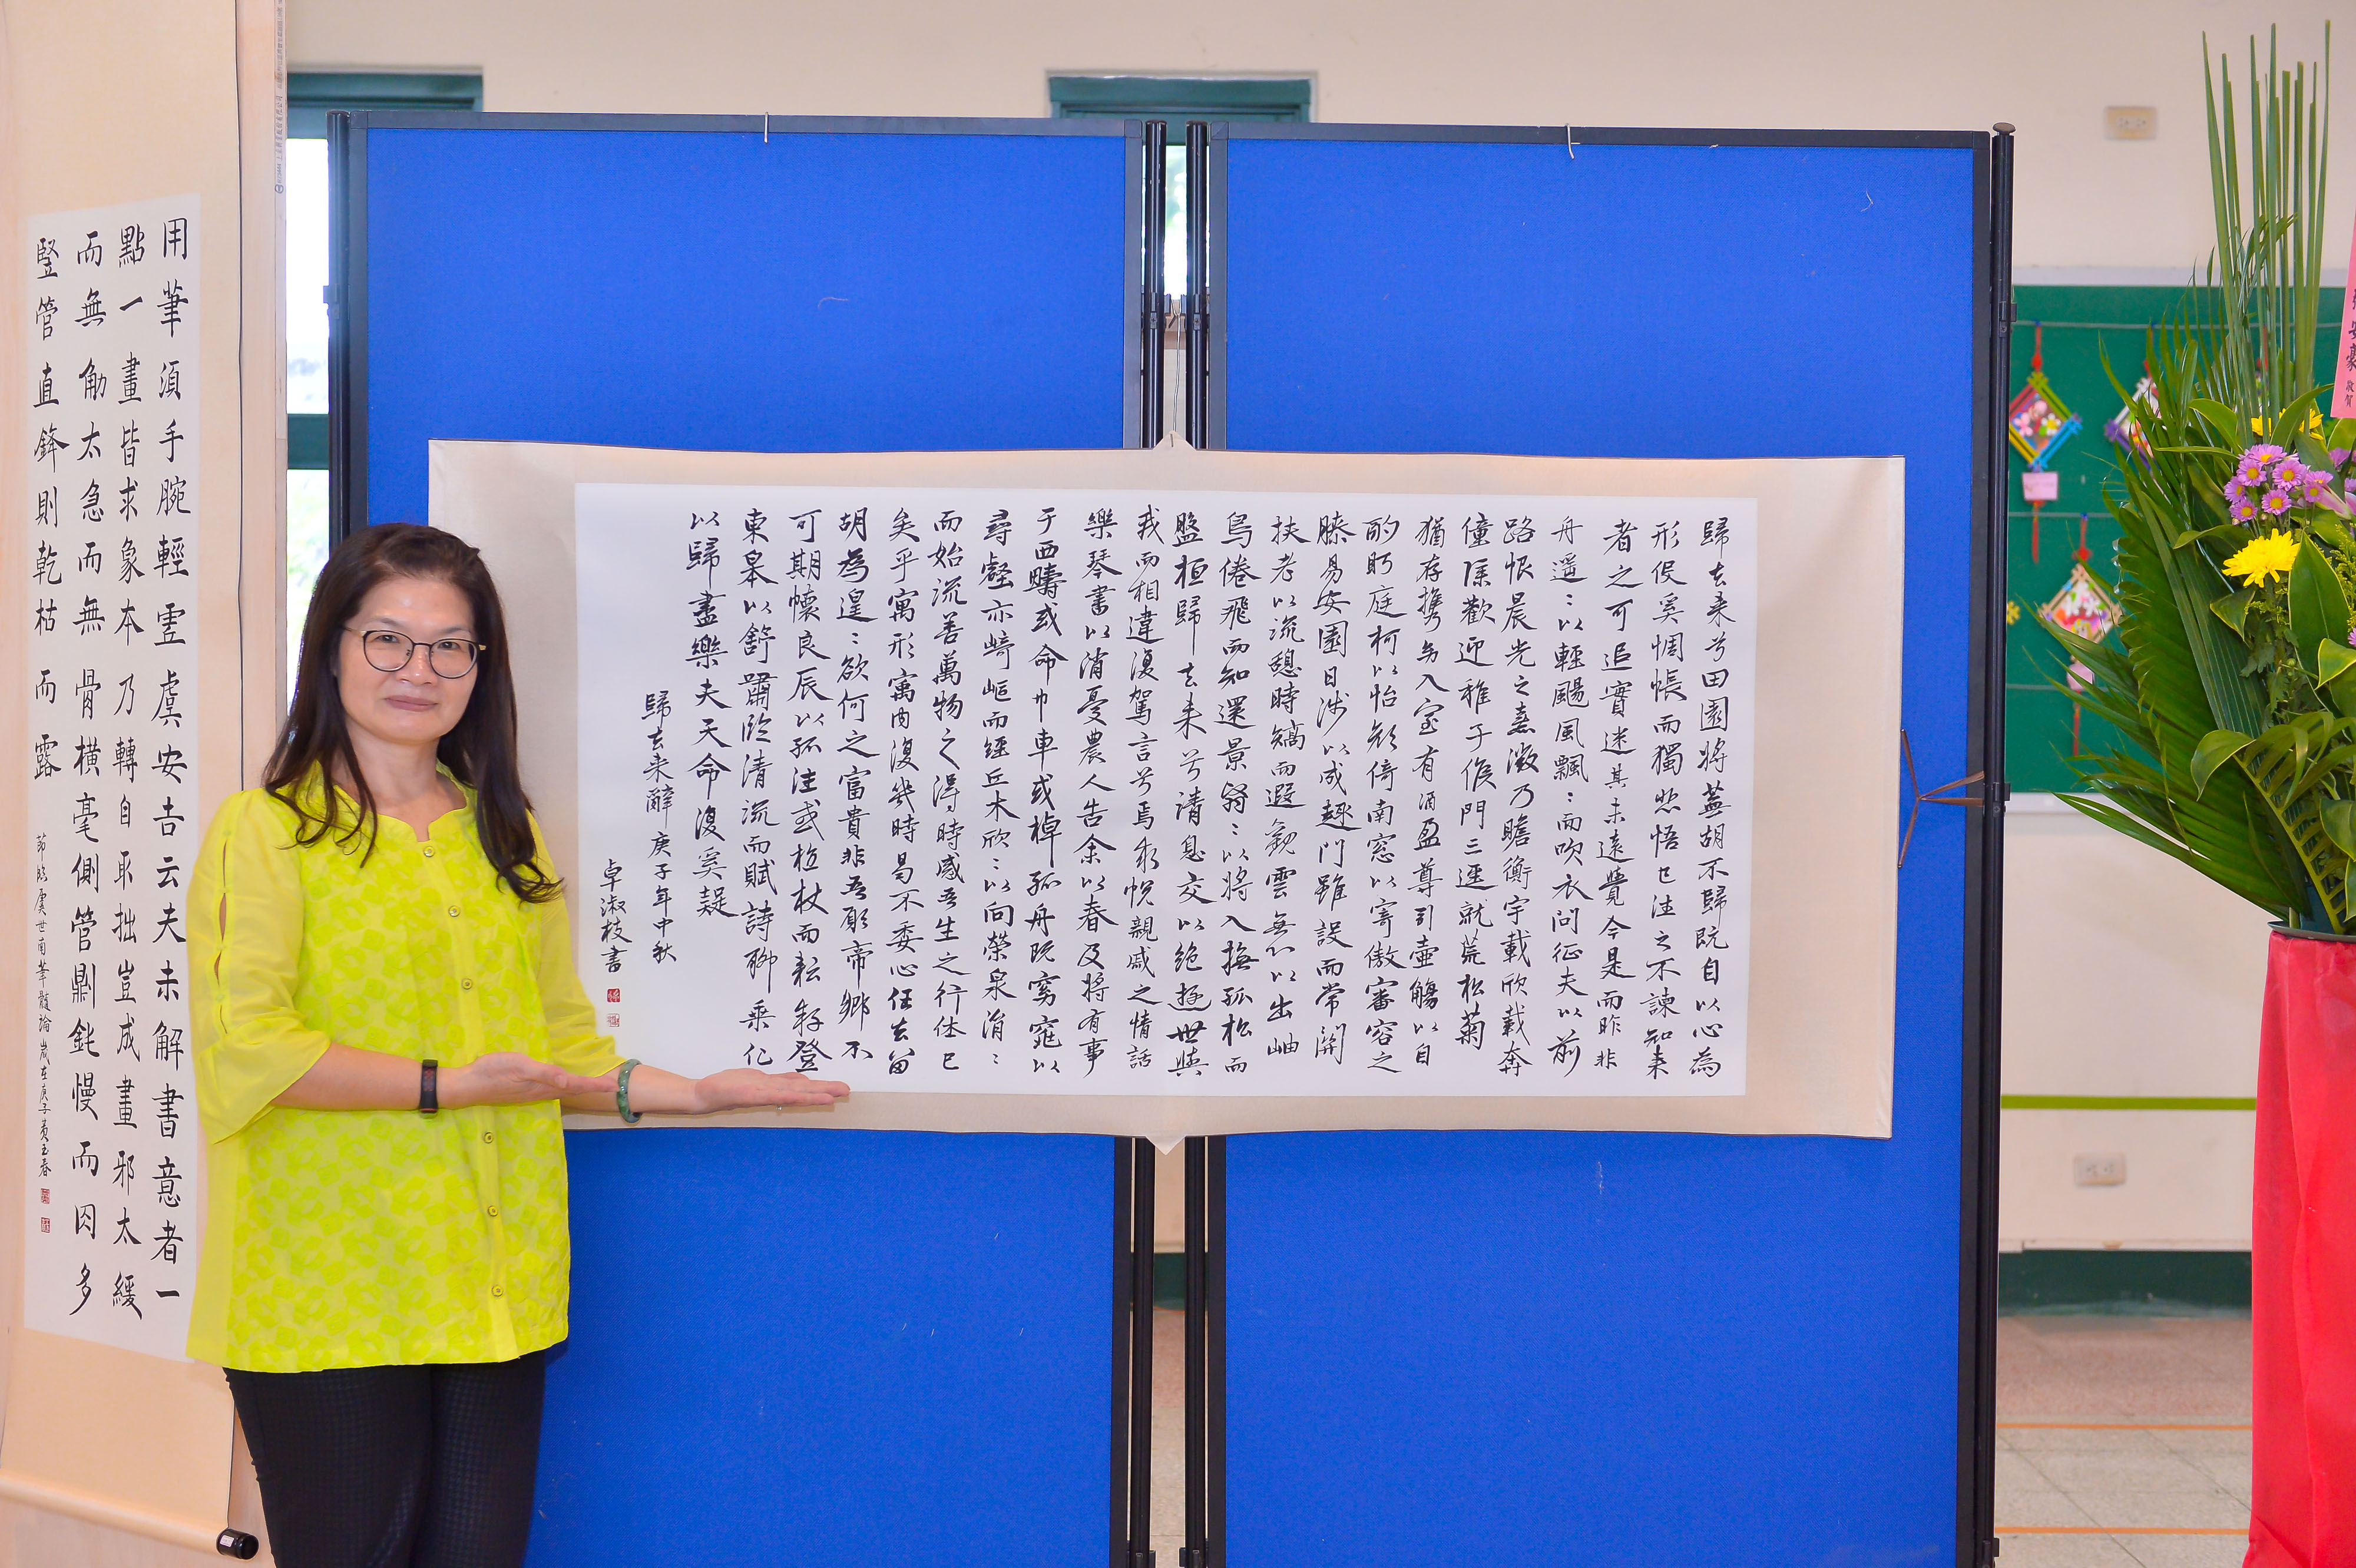 歸去来兮田園將蕪胡不歸既自以心為
形伇奚惆悵而獨悲悟已往之不諫知来
者之可追實迷其未遠覺今是而昨非
舟遥〻以輕颺風飄〻而吹衣問征夫以前
路恨晨光之熹微乃瞻衡宇載欣載奔
僮僕歡迎稚子候門三逕就荒松菊
猶存携幼入室有酒盈尊引壷觴以自
酌眄庭柯以怡顏倚南窓以寄傲審容之
膝易安園日涉以成趣門雖設而常關
扶老以流憩時矯而遐觀雲無心以出岫
鳥倦飛而知還景翳〻以將入撫孤松而
盤桓歸去来兮請息交以絶遊世與
我而相違復駕言兮焉求悅親戚之情話
樂琴書以消憂農人告余以春及將有事
于西疇或命巾車或棹孤舟既窈窕以
尋壑亦崎嶇而經丘木欣〻以向榮泉涓〻
而始流善萬物之得時感吾生之行休已
矣乎寓形寓內復幾時曷不委心任去留
胡為遑〻欲何之富貴非吾願帝鄉不
可期懷良辰以孤往或植杖而耘耔登
東皋以舒嘯臨清流而賦詩聊乘化
以歸盡樂夫天命復奚疑
歸去来辭 庚子年中秋
卓淑枝書
用筆須手腕輕虛虞安吉云夫未解書意者一
點一畫皆求象本乃轉自取拙豈成畫邪太緩
而無觔太急而無骨橫毫側管則鈍慢而肉多
豎管直鋒則乾枯而露
節臨虞世南筆髓論 歲在庚子黃玉春
安豪 敬賀